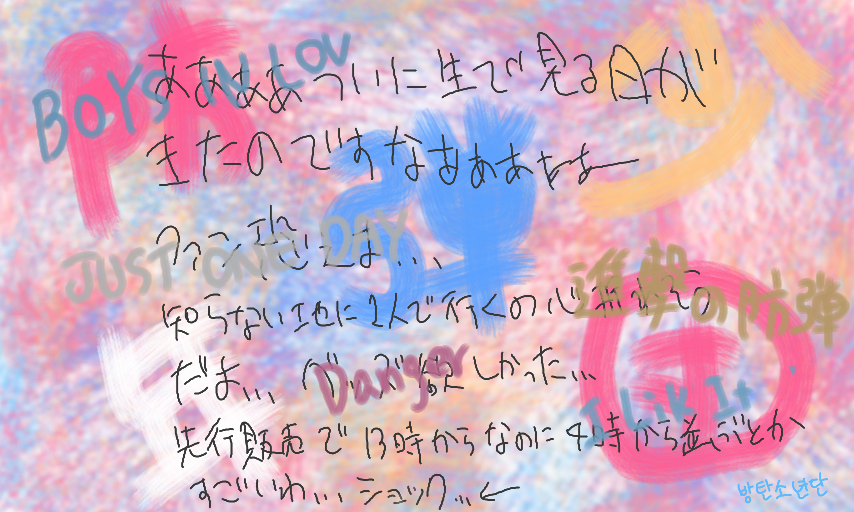 防
弾
少
年
団
BOYS IN LOV
ああああついに生で見る日が
きたのですなああああー
JUST ONE DAY
進撃の防弾
知らない土地に1人で行くの心
だよ... 欲しかった...
Danger
I Lik It
先行販売で13時からなのに4時から並ぶとか
すごいわ... ショック...←
방탄소년단